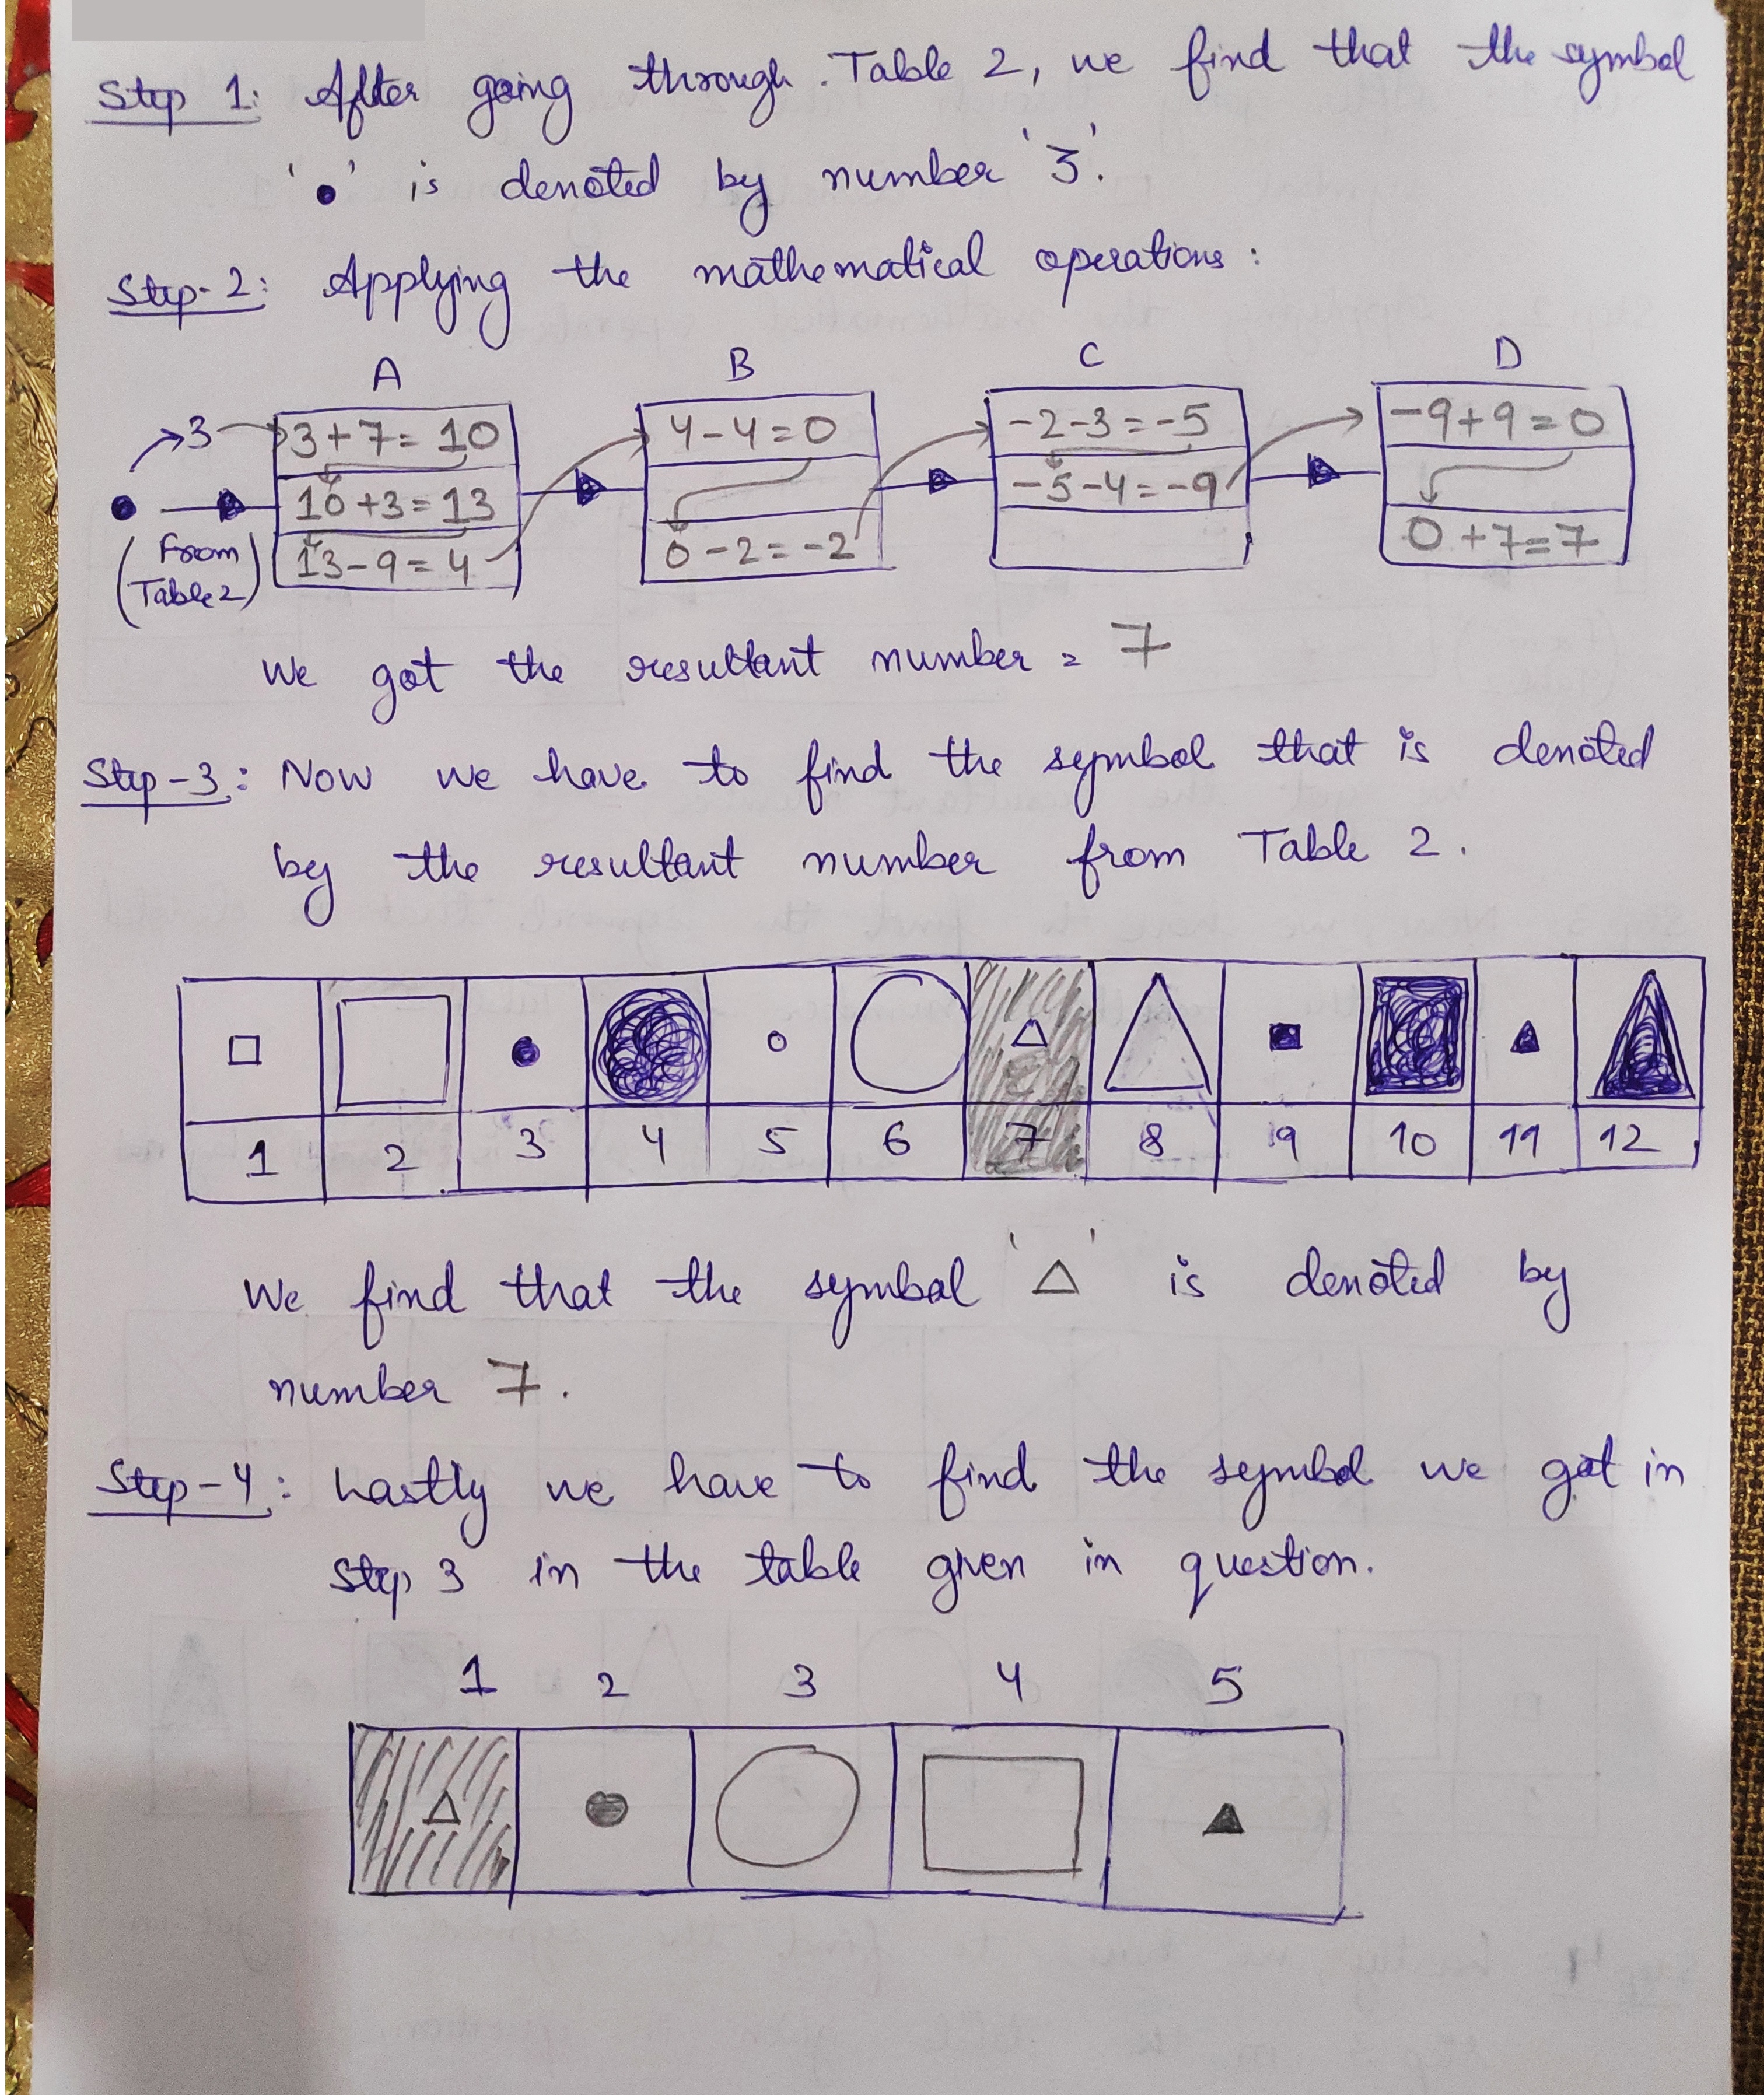 Step 1: After going through Table 2, we find that the symbol
'●' is denoted by number '3'.
Step-2: Applying the mathematical operations:
A B C D
3 3+7=10 4-4=0 -2-3=-5 -9+9=0
10+3=13 -5-4=-9
(From Table 2) 13-9=4 0-2=-2 0+7=7
We got the resultant number = 7
Step-3: Now we have to find the symbol that is denoted
by the resultant number from Table 2.
1 2 3 4 5 6 7 8 9 10 11 12
We find that the symbol '△' is denoted by
number 7.
Step-4: Lastly we have to find the symbol we got in
step 3 in the table given in question.
1 2 3 4 5